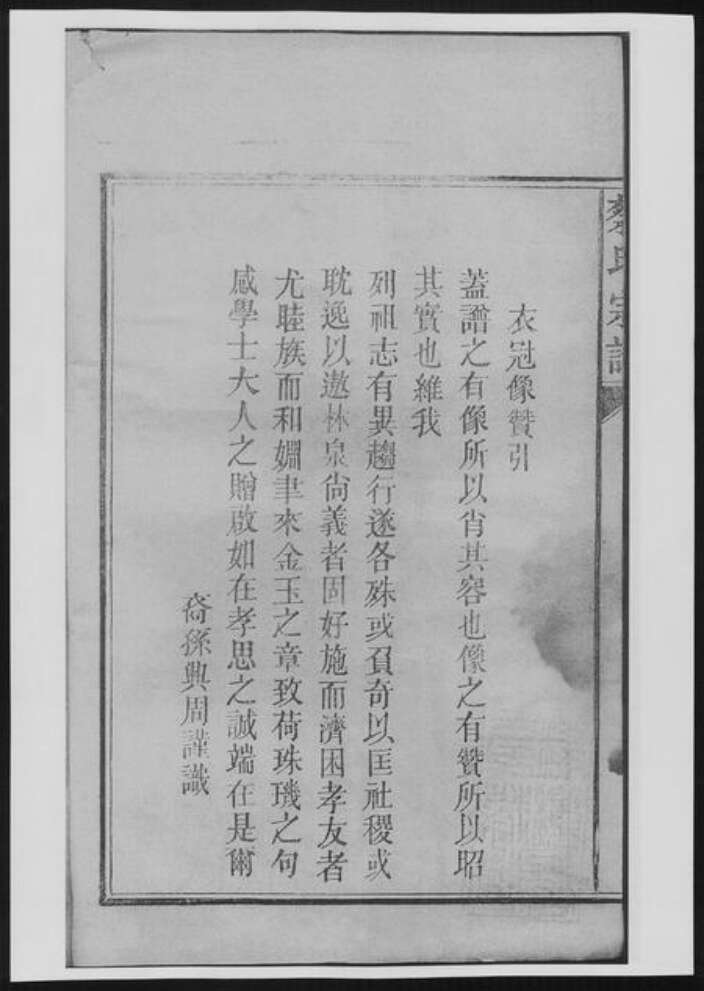 蔡氏宗譜
衣冠像贊引
蓋譜之有像所以肖其容也像之有贊所以昭
其實也維我
列祖志有異趨行遂各殊或負奇以匡社稷或
耽逸以遨林泉尙義者固好施而濟困孝友者
尤睦族而和婣聿來金玉之章致荷珠璣之句
感學士大人之贈啟如在孝思之誠端在是爾
裔孫興周謹識